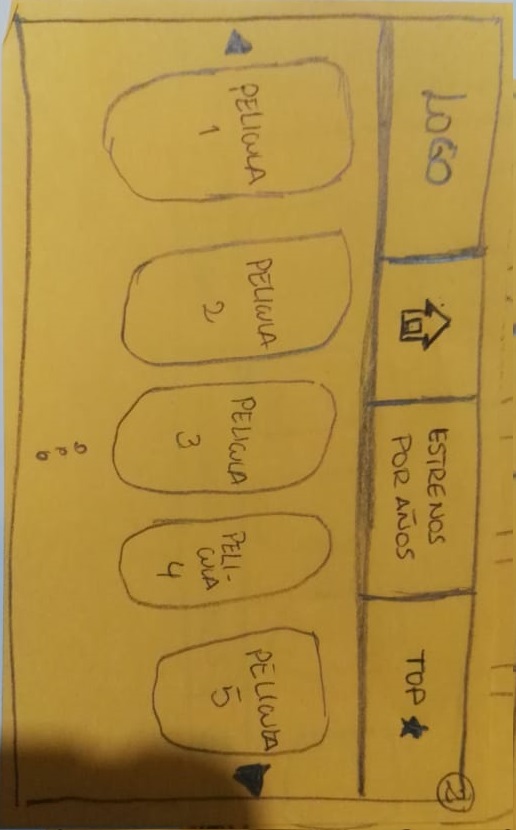 LOGO
ESTRENOS
POR AÑOS
TOP
2
PELICULA
1
PELICULA
2
PELICULA
3
PELI-
CULA
4
PELICULA
5